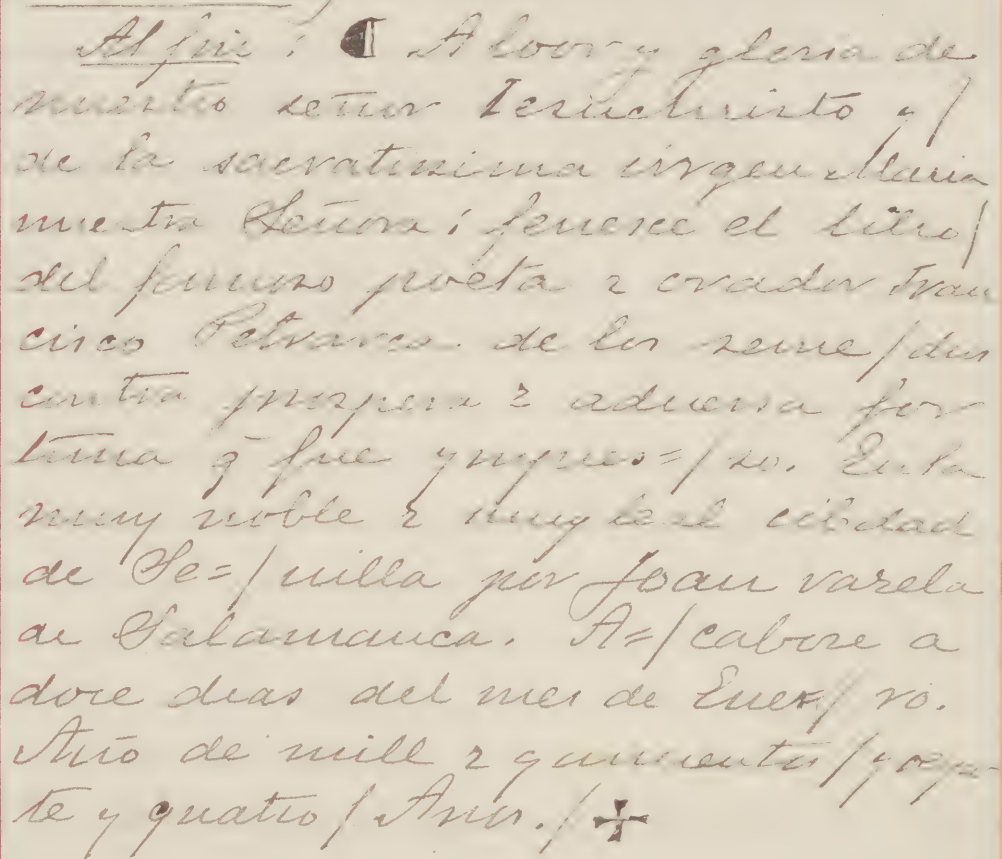 Al fin : ¶ A loor y gloria de
nuestro señor Iesuchristo y /
de la sacratissima virgen Maria
nuestra Señora : fenesce el libro /
del famoso poeta ⁊ orador Fran
cisco Petrarca de los reme / dios
contra prospera ⁊ aduersa for
tuna q̄ fue ympres= / so. En la
muy noble ⁊ muy leal cibdad
de Se= / uilla por Joan varela
de Salamanca. A= / cabose a
doze dias del mes de Ener= / ro.
Año de mill ⁊ quinientos / y
te y quatro / Años. / ✠